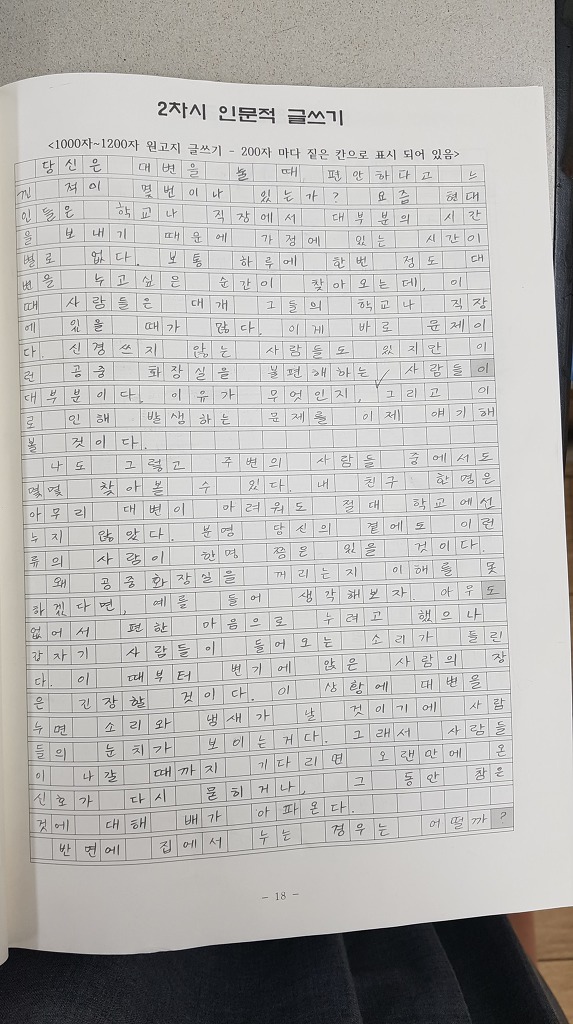 2차시 인문적 글쓰기
<1000자~1200자 원고지 글쓰기 - 200자 마다 짙은 칸으로 표시 되어 있음>
당신은 대변을 눌 때, 편안하다고 느
낀 적이 몇번이나 있는가? 요즘 현대
인들은 학교나 직장에서 대부분의 시간
을 보내기 때문에 가정에 있는 시간이
별로 없다. 보통 하루에 한번 정도 대
변을 누고싶은 순간이 찾아오는데, 이
때 사람들은 대개 그들의 학교나 직장
에 있을 때가 많다. 이게 바로 문제이
다. 신경쓰지 않는 사람들도 있지만 이
런 공중 화장실을 불편해하는 사람들이
대부분이다. 이유가 무엇인지, 그리고 이
로 인해 발생하는 문제를 이제 얘기해
볼 것이다.
나도 그렇고 주변의 사람들 중에서도
몇몇 찾아볼 수 있다. 내 친구 한명은
아무리 대변이 마려워도 절대 학교에선
누지 않았다. 분명 당신의 곁에도 이런
류의 사람이 한명 쯤은 있을 것이다.
왜 공중화장실을 꺼리는지 이해를 못
하겠다면, 예를 들어 생각해보자. 아무도
없어서 편한 마음으로 누려고 했으나
갑자기 사람들이 들어오는 소리가 들린
다. 이 때부터 변기에 앉은 사람의 장
은 긴장할 것이다. 이 상황에 대변을
누면 소리와 냄새가 날 것이기에 사람
들의 눈치가 보이는거다. 그래서 사람들
이 나갈 때까지 기다리면 오랜만에 온
신호가 다시 묻히거나, 그 동안 참은
것에 대해 배가 아파온다.
반면에 집에서 누는 경우는 어떨까?
- 18 -